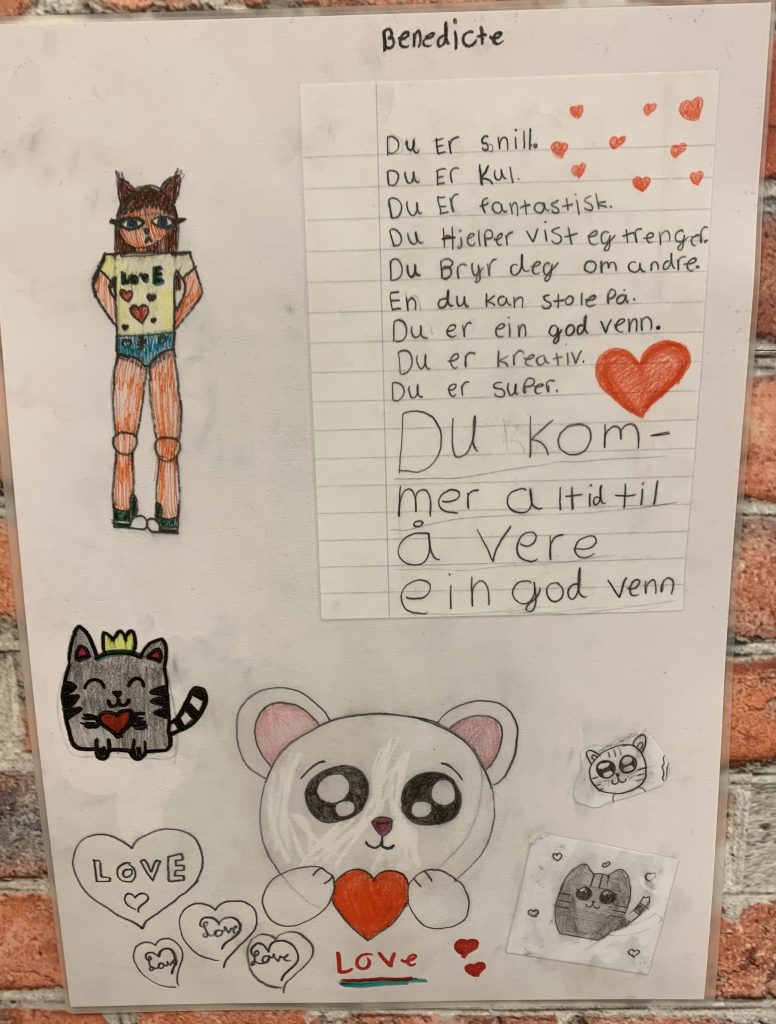 Benedicte
Du Er snill.
Du Er Kul.
Du Er fantastisk.
Du Hjelper vist eg trenger.
Du Bryr deg om andre.
En du kan stole På.
Du er ein god venn.
Du er kreativ.
Du er super.
Du kom-
mer altid til
å vere
ein god venn
LOVE
LOVE
Love
Love
Love
Love